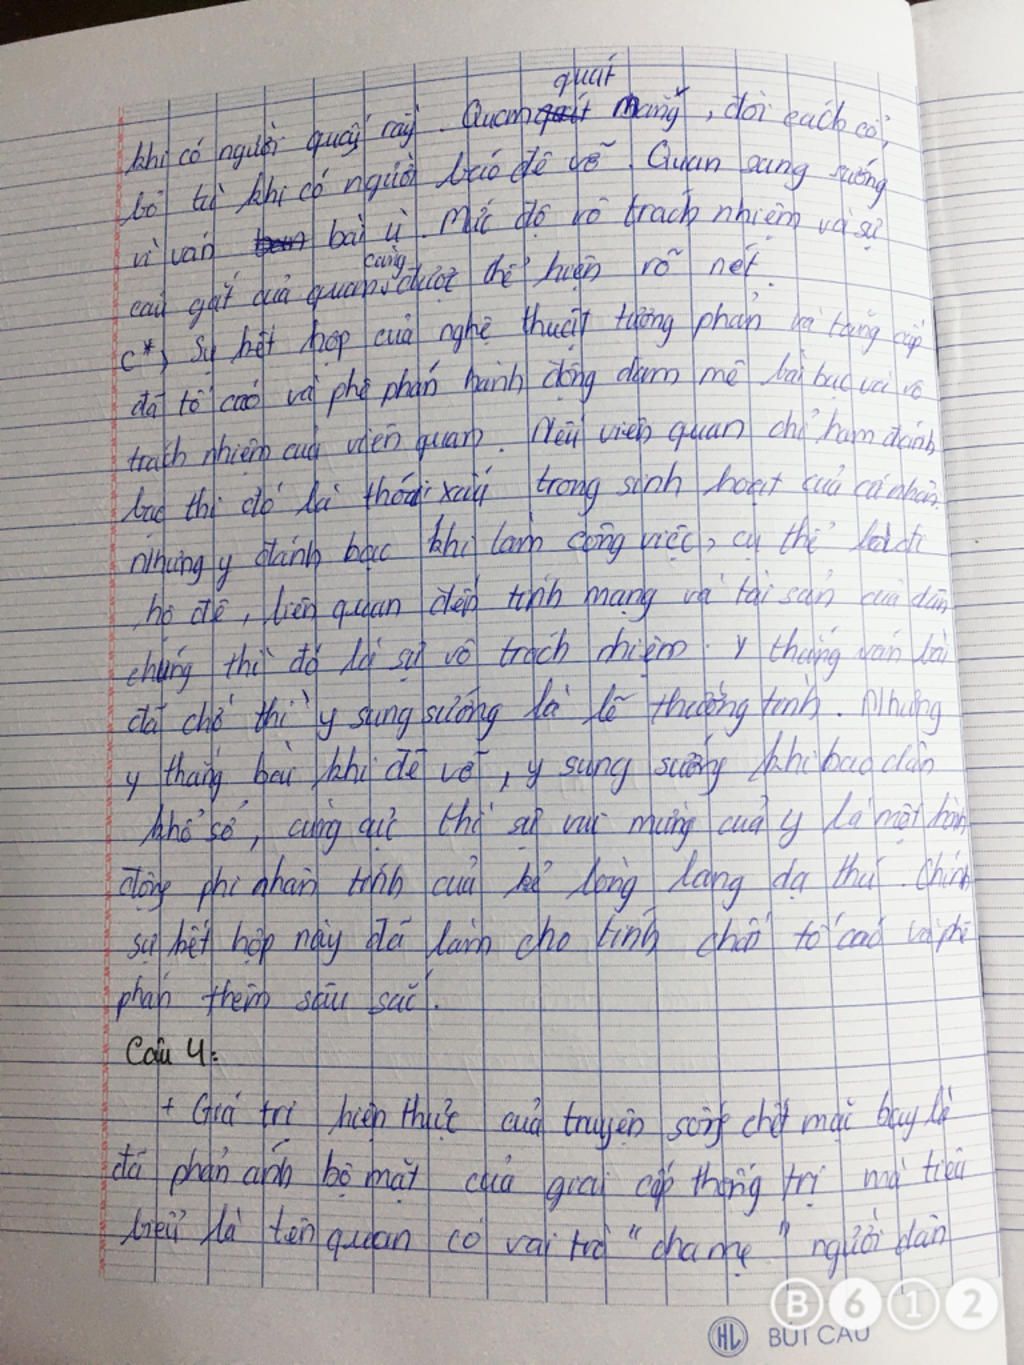 quát
khi có người quấy rầy. Quan quát mắng, đòi cách cổ,
bỏ tù khi có người báo đê vỡ. Quan sung sướng
vì ván bài ù. Mức độ vô trách nhiệm và sự
càng
cáu gắt của quan được thể hiện rõ nét.
c*, Sự kết hợp của nghệ thuật tương phản và tăng cấp
đã tố cáo và phê phán hành động đam mê bài bạc và vô
trách nhiệm của viên quan. Nếu viên quan chỉ ham đánh
bạc thì đó là thói xấu trong sinh hoạt của cá nhân.
Nhưng y đánh bạc khi làm công việc, cụ thể là đi
hộ đê, liên quan đến tính mạng và tài sản của dân
chúng thì đó là sự vô trách nhiệm. Y thắng ván bài
đã chờ thì y sung sướng là lẽ thường tình. Nhưng
y thắng bài khi đê vỡ, y sung sướng khi bao dân
khổ sở, cùng cực thì sự vui mừng của y là một hành
động phi nhân tính của kẻ lòng lang dạ thú. Chính
sự kết hợp này đã làm cho tính chất tố cáo và phê
phán thêm sâu sắc.
Câu 4:
+ Giá trị hiện thực của truyện sống chết mặc bay là
đã phản ánh bộ mặt của giai cấp thống trị mà tiêu
biểu là tên quan có vai trò "cha mẹ" người dân
B612
HL BÚT CAU